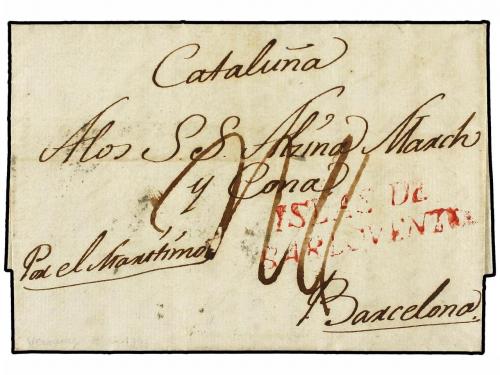 Cataluña
Alos S.S. Alsina March
y Cona
ISLAS DE
BARLOVENTO
Por el Marítimo
Barcelona.